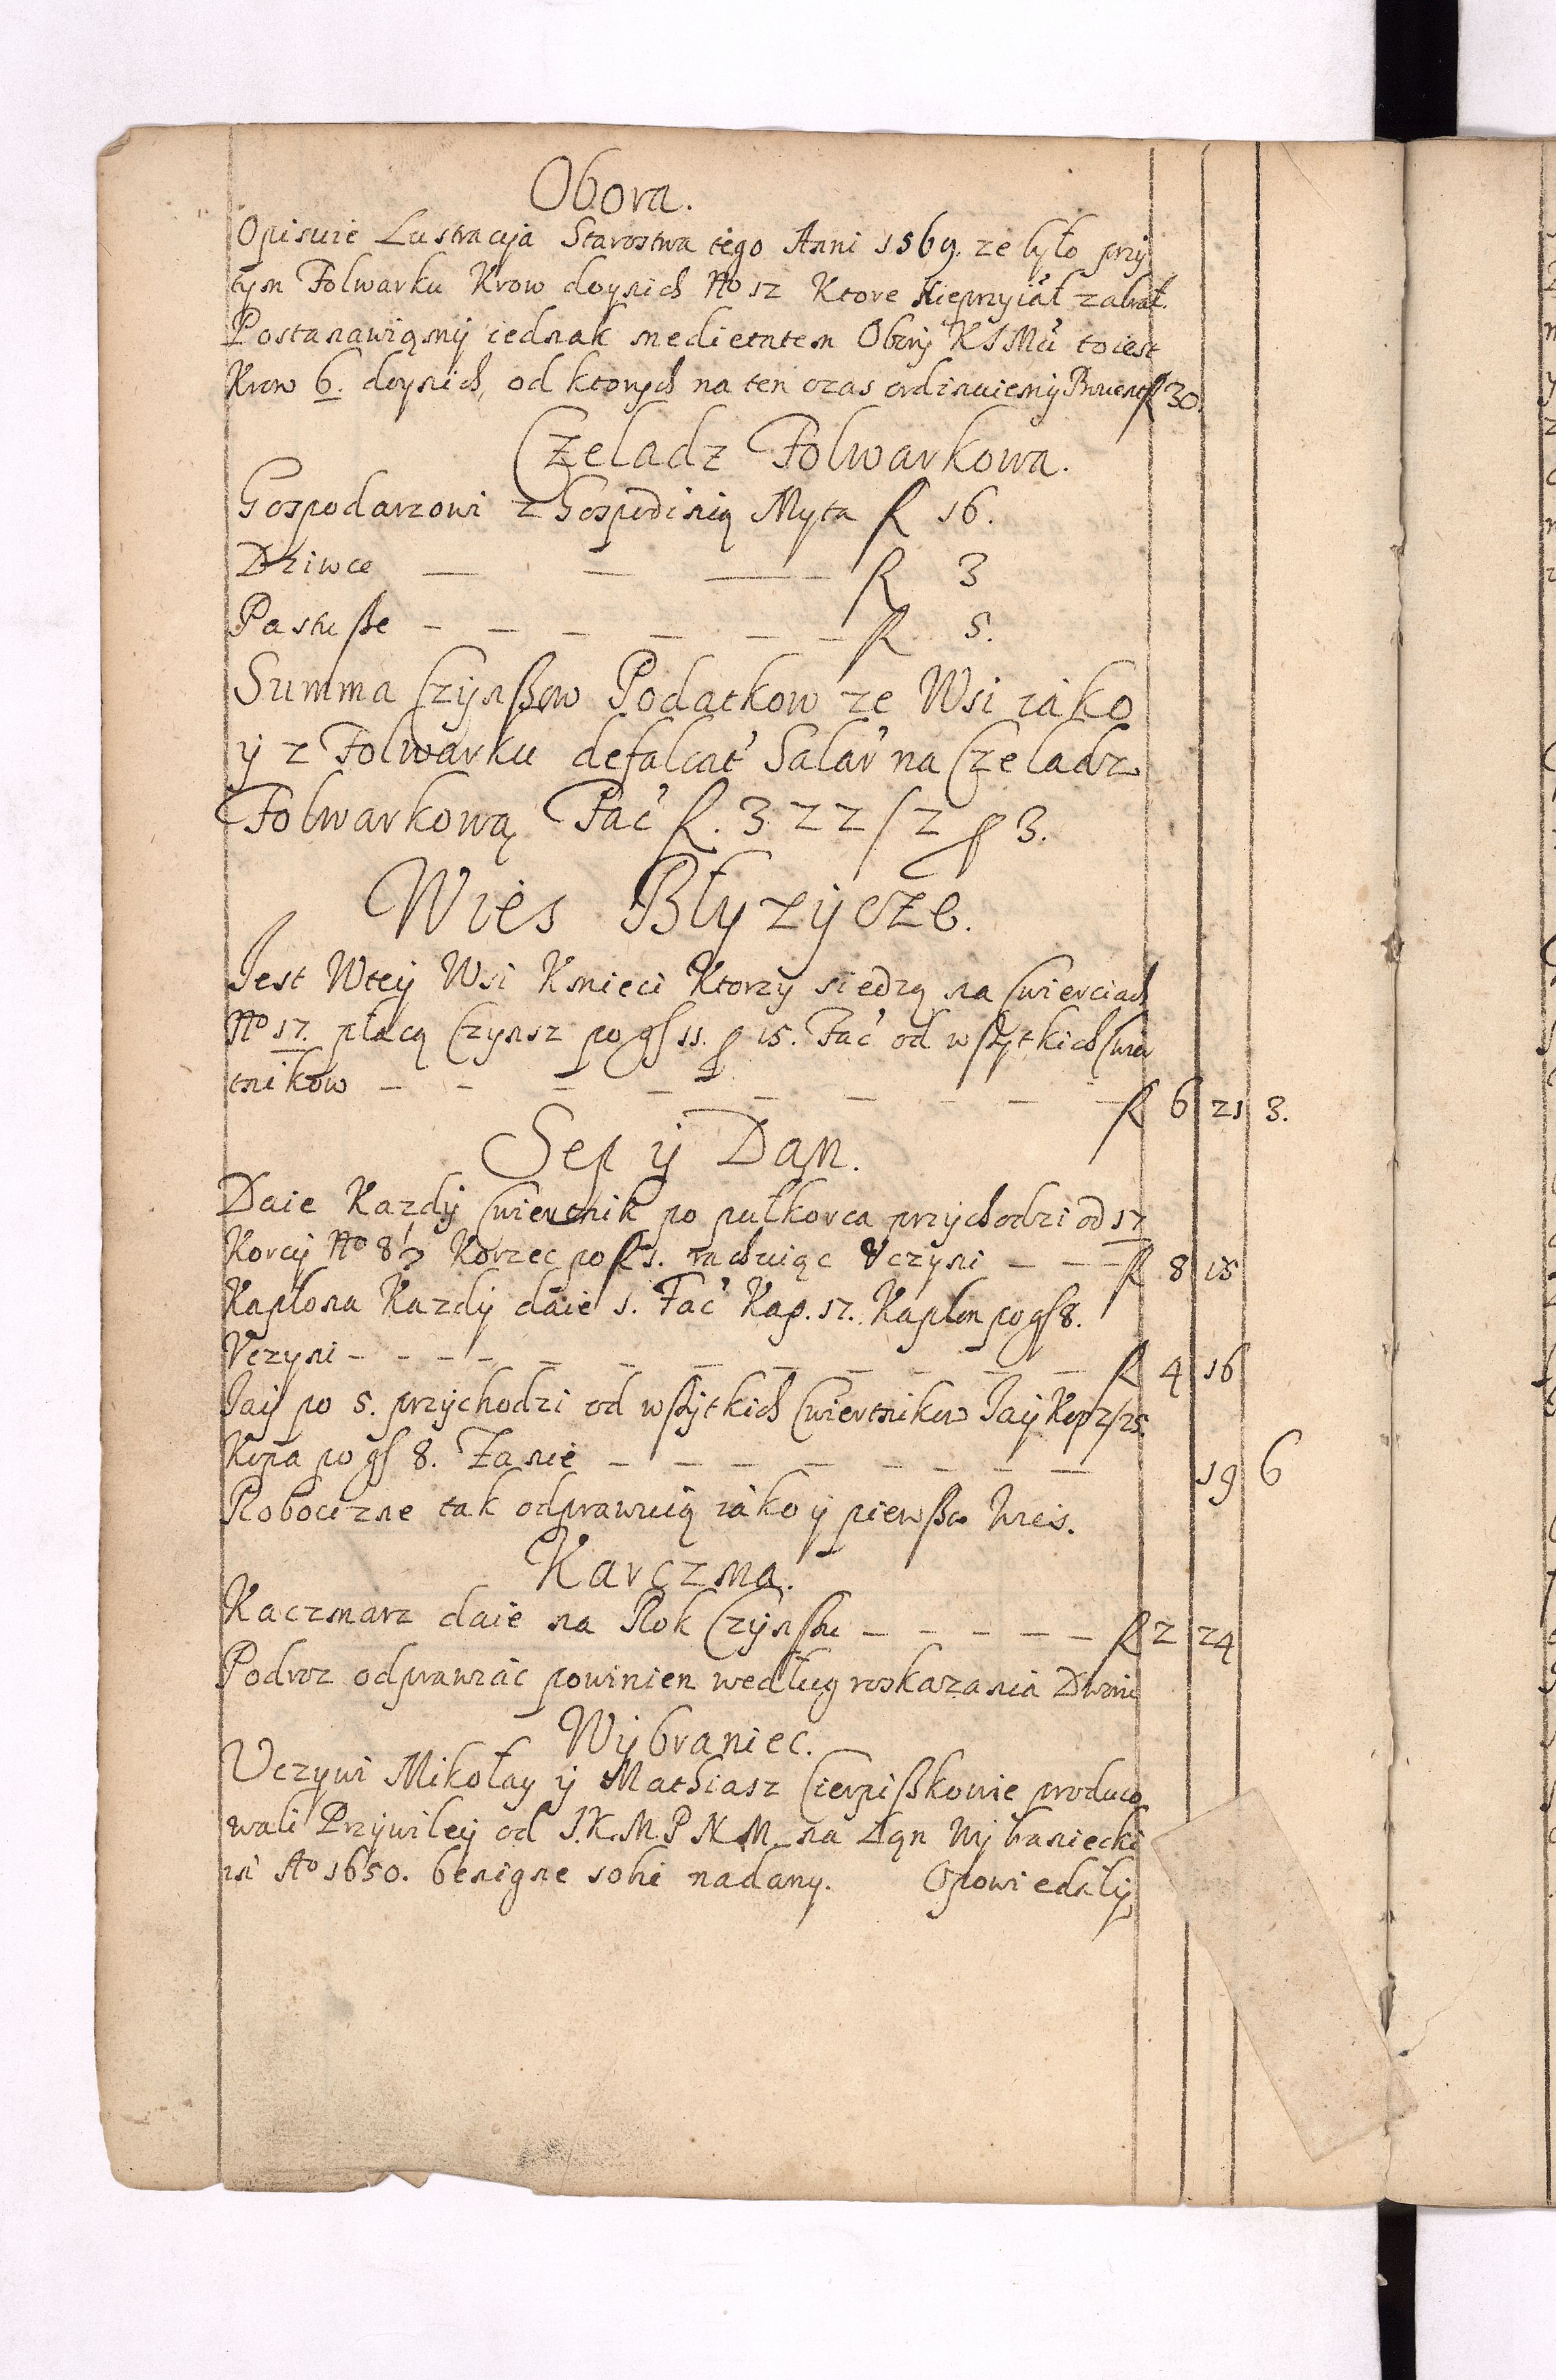 Obora.
Opisuie Lustracyja Starostwa tego Anni 1569. ze było przÿ
tym Folwarku Krow doynich No 12 Ktore Nieprzyiäł zabrał.
Postanawiamÿ iednak medietatem Oborÿ KIMci to iest
Krow 6. doynich, od ktorych na ten czas ordinuiemÿ Prouent f 30.
Czeladz Folwarkowa.
Gospodarzowi z Gospodinią Myta f 16.
Dziwce — — — — f 3
Pastuße — — — — — — f 5.
Summa Czÿnßow Podatkow ze Wsi iako
ÿ z Folwarku defalcat' Salar' na Czeladz
Folwarkową Fac' f. 322/2 ꝑ 3.
Wies Błyzÿcze.
Jest Wteÿ Wsi Kmieci Ktorzÿ siedzą na Cwierciach
No 17. płacą Czynsz po gß 11. ꝑ 15. Fac' od wßÿtkich Cwier
tnikow — — — — — — — — — f 6 21 3.
Sep ÿ Dan.
Daie Kazdÿ Cwiertnik po pułkorca przÿchodzi od 17
Korcÿ No 8½ Korzec po f 1. rachuiąc Vczyni — — — f 8 15
Kapłona Kazdÿ daie 1. Fac' Kap. 17. Kaplon po gß 8.
Vczyni — — — — — — — — — — — f 4 16
Jaÿ po 5. przÿchodzi od wßÿtkich Cwiertnikow Jaÿ Kop 1/25
Kopa po gß 8. Za nie — — — — — — — — 19 6
Robocizne tak odprawuią iako ÿ pierwßa Wies.
Karczma.
Kaczmarz daie na Rok Czÿnßu — — — — — f 2 24
Podroz odprawiac powinien według roskazania Dworu
Wÿbraniec.
Vczywi Mikołay ÿ Mathiasz Cierpißkowie produco
wali Przÿwileÿ od J.K.M.P.N.M. na Łan Wÿbraniecki
in Ao 1650. benigne sobi nadany. Opowiedzły